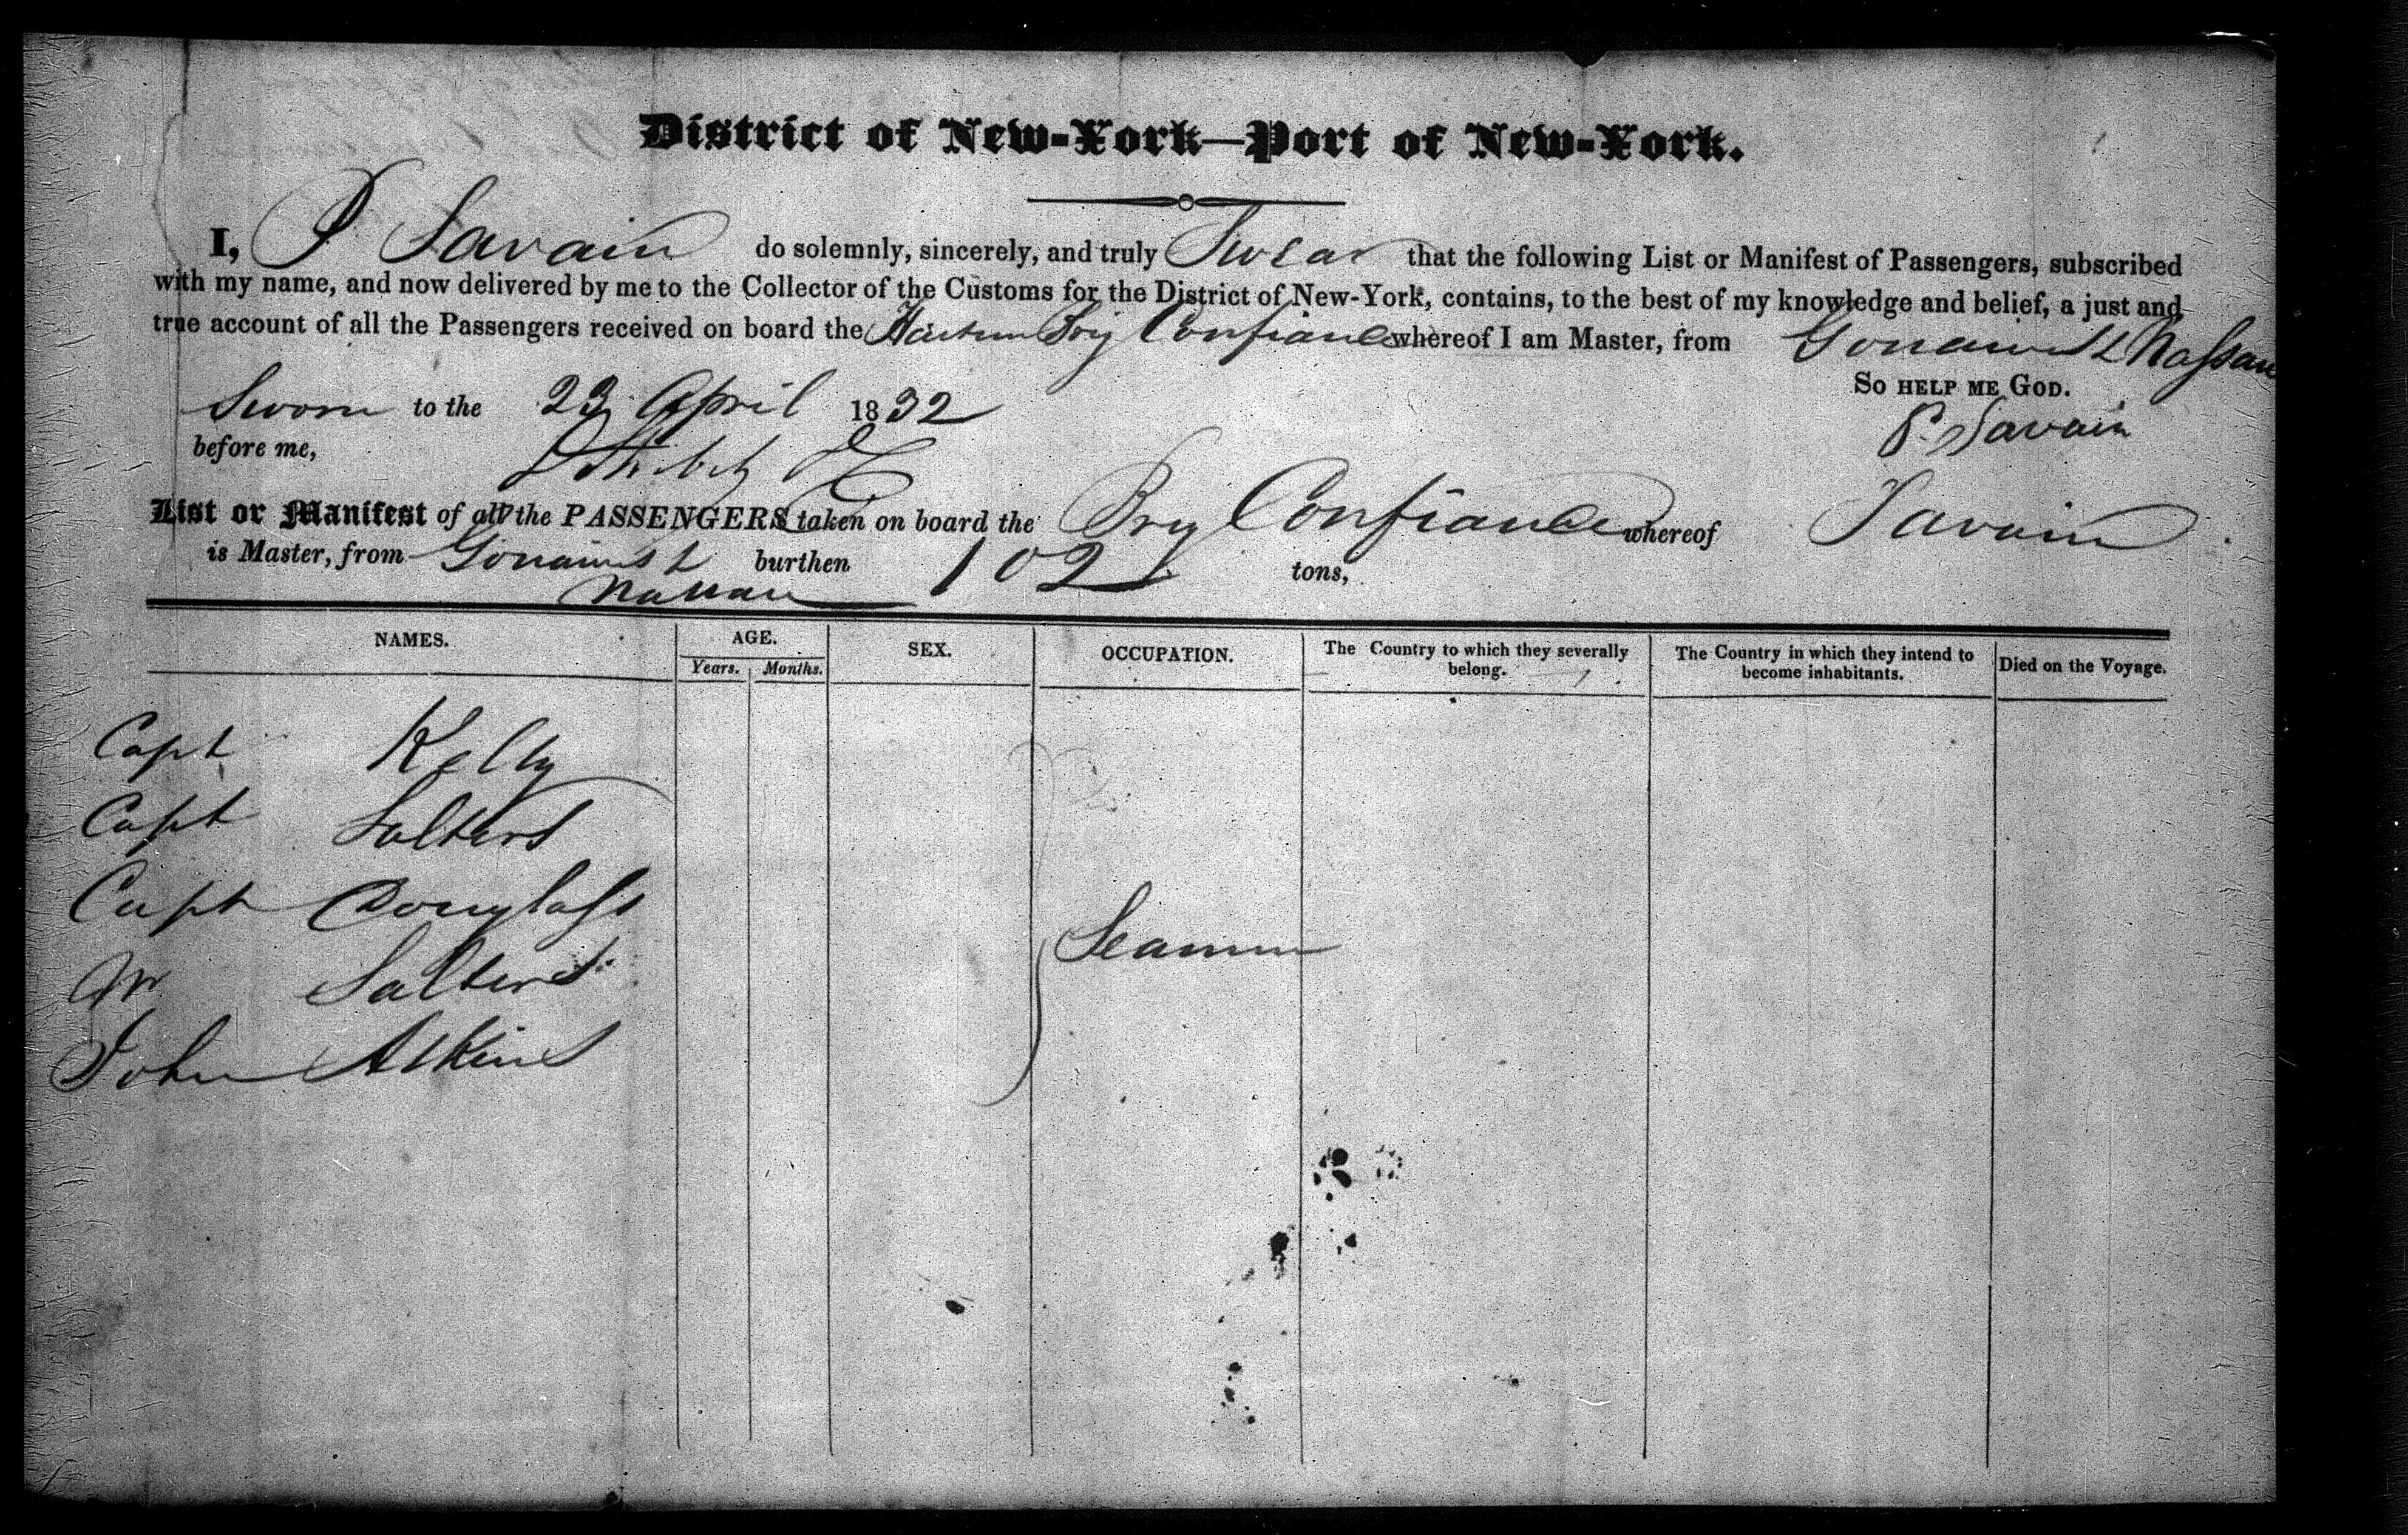 District of New-York—Port of New-York.
I, P Savain do solemnly, sincerely, and truly Swear that the following List or Manifest of Passengers, subscribed
with my name, and now delivered by me to the Collector of the Customs for the District of New-York, contains, to the best of my knowledge and belief, a just and
true account of all the Passengers received on board the Brig Confiance whereof I am Master, from Nassau
So help me God.
Sworn to the 23 April 1832
P. Savain
before me,
List or Manifest of all the PASSENGERS taken on board the Brig Confiance whereof Savain
is Master, from burthen 102 tons,
Nassau
NAMES. AGE. SEX. OCCUPATION. The Country to which they severally belong. The Country in which they intend to become inhabitants. Died on the Voyage.
Years. Months.
Capt Kelly
Capt Salters
Capt Douglass
Salters
Seamen
John Atkins